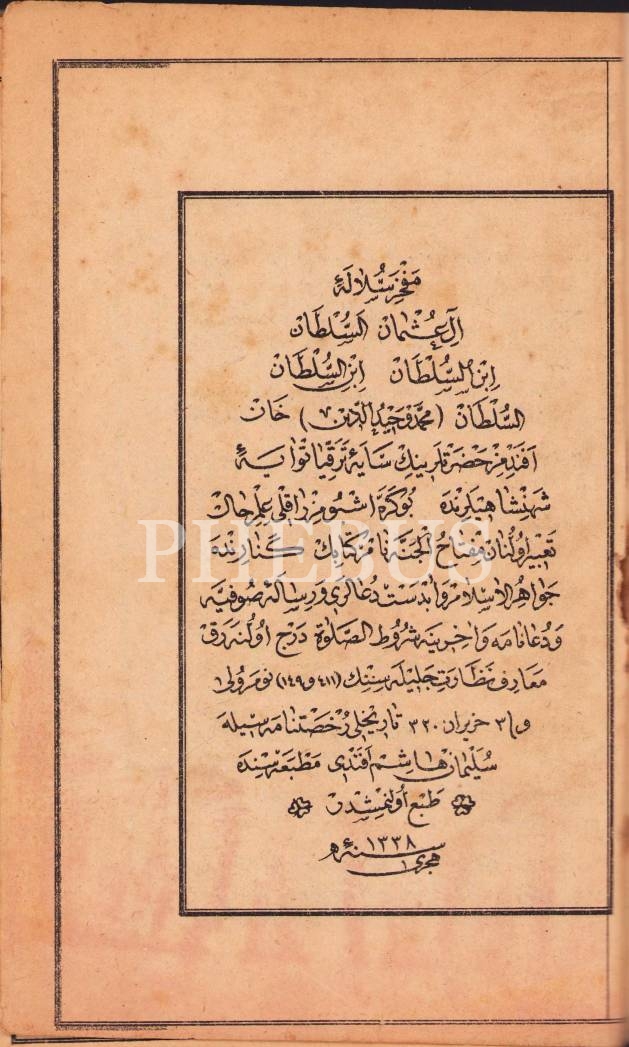 مَفْخَرِ سُلَالَۀِ
آلِ عُثْمَانْ اَلسُّلْطَانْ
اِبْنِ السُّلْطَانْ اِبْنِ السُّلْطَانْ
السُّلْطَانْ (مُحَمَّدْ وَحِيدُ الدِّينْ) خَانْ
اَفَنْدِمِزْ حَضْرَتْلَرِينِكْ سَايَۀِ تَرَقِّيَاتْوَايَۀِ
شَهِنْشَاهِيلَرِنْدَه بُو كَرَّه اِشْبُو مِزْرَاقْلِى عِلْمِحَالْ
تَعْبِيرْ اُولُنَانْ مِفْتَاحُ الْجَنَّة نَامْ كِتَابِكْ كَنَارِنْدَه
جَوَاهِرُ الْاِسْلَامْ وَ اَبْدَسْتْ دُعَالَرِى وَ رِسَالَۀِ صُوفِيَّه
وَ دُعَانَامَه وَ اٰخِرِينَه شُرُوطُ الصَّلٰوة دَرْجْ اُولُنَه رَقْ
مَعَارِفْ نَظَارَتِ جَلِيلَه سِنِكْ (٤١١ و ١٤٩) نُومَرُولِى
و ٣١ حزيران ٣٢٠ تَارِيخْلِى رُخْصَتْنَامَه سِيلَه
سُلَيْمَانْ هَاشِمْ اَفَنْدِى مَطْبَعَه سِنْدَه
طَبْعْ اُولِنْمِشْدِرْ
سنۀ ١٣٣٨ هجرى
PHEBUS